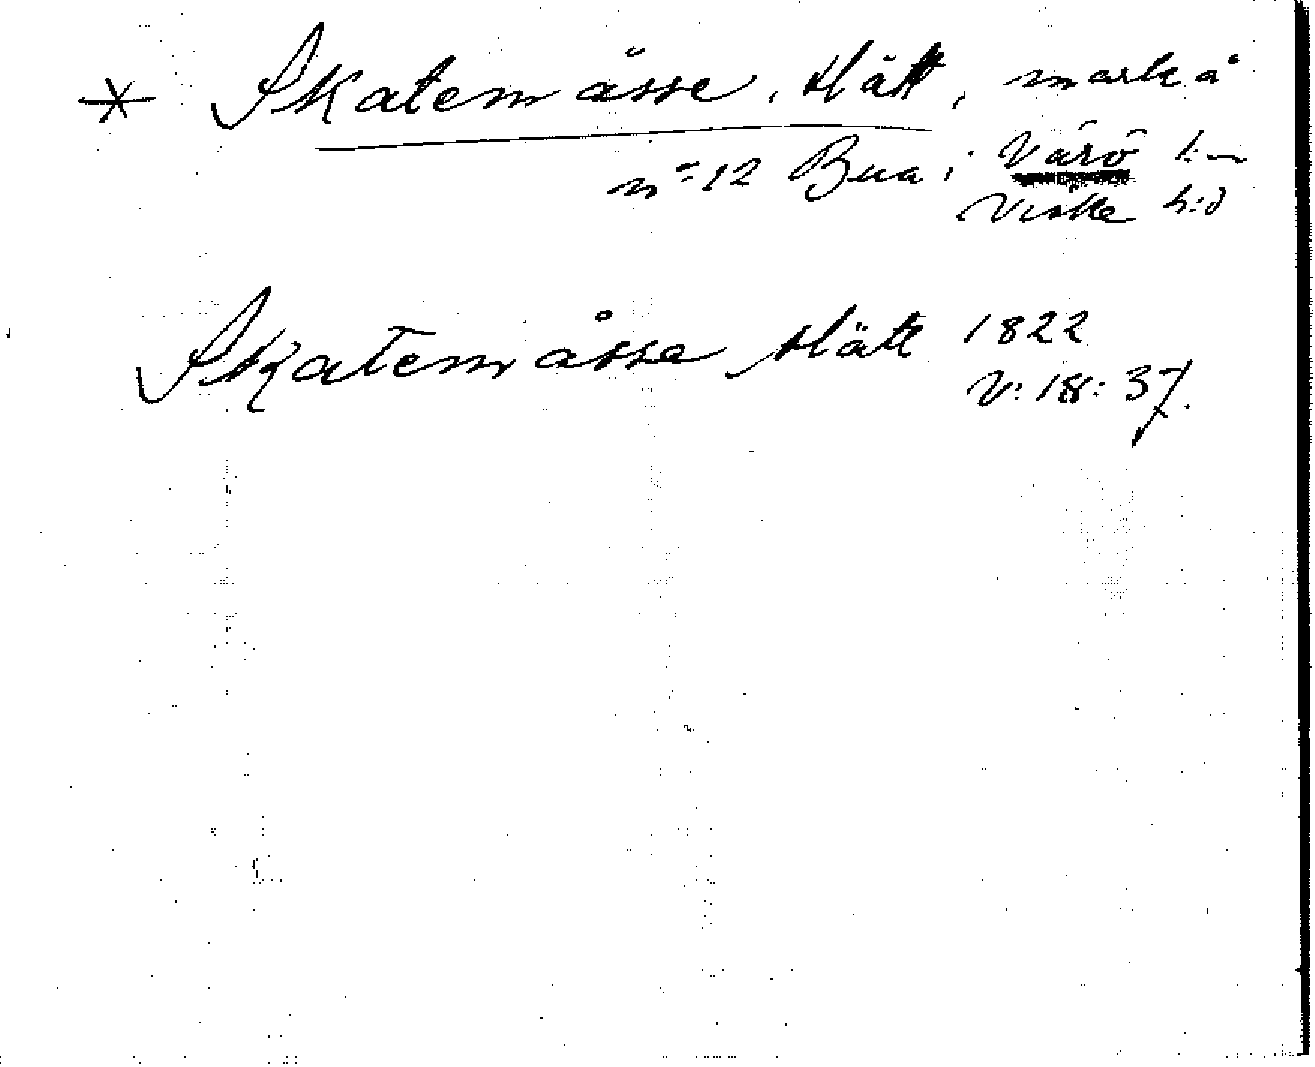 * Skatemåsse Hätt, mark å
nº 12 Bua i Värö s:n
Viske h:d
Skatemåsse Hätt 1822
V: 18: 37.